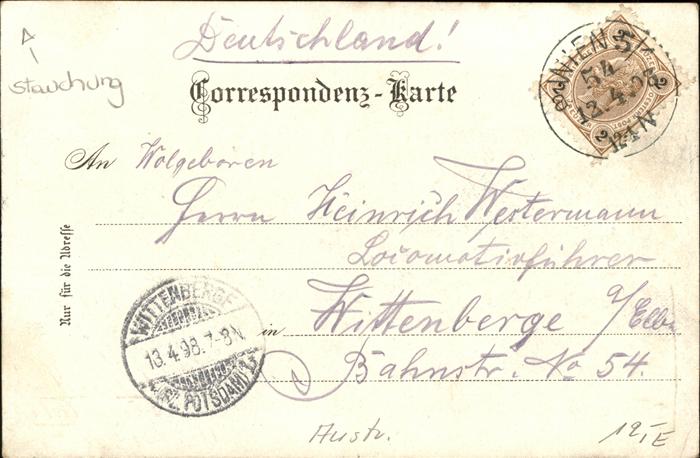 Deutschland!
Stauchung
Correspondenz-Karte
WIEN 5/1
54
12.4.98
An Wolgeboren
Herrn Heinrich Westermann
Locomotivführer
in Wittenberge a/Elbe
Bahnstr. No 54.
Nur für die Adresse
WITTENBERGE
13.4.98.7-8N.
(BZ. POTSDAM)
Austr.